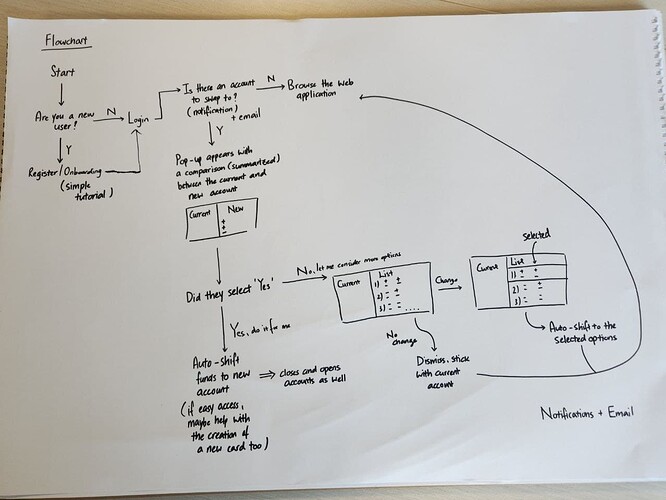 Flowchart
Start
Are you a new
user?
N
Login
Y
Register/Onboarding
(simple
tutorial)
Is there an account
to swap to?
(notification)
+ email
N
Browse the web
application
Y
Pop-up appears with
a comparison (summarized)
between the current and
new account
Current
New
+
+
-
Did they select 'Yes'
No, let me consider more options
Current
List
1) + ±
2) = -
3) = = ....
Change
selected
Current
List
1) + ±
2) = +
3) = =
Yes, do it for me
No
change
Auto-shift to the
selected options
Auto-shift
funds to new
account
⇒ closes and opens
accounts as well
Dismiss, stick
with current
account
(if easy access,
maybe help with
the creation of
a new card too)
Notifications + Email